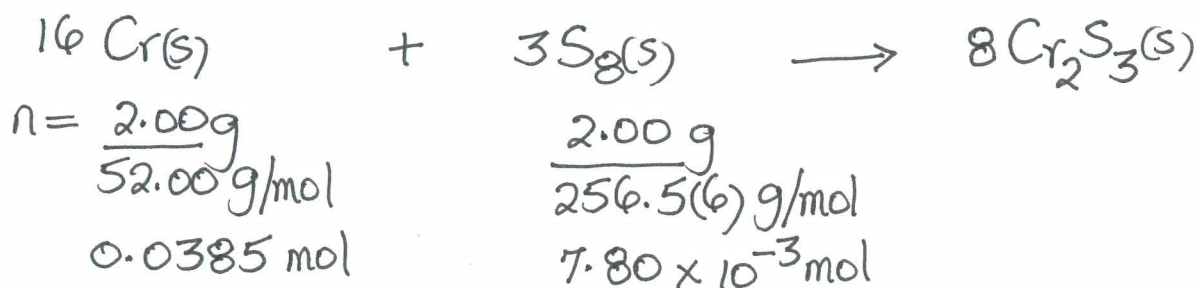 16 Cr(s) + 3S₈(s) ⟶ 8Cr₂S₃(s)
n = 2.00g / 52.00 g/mol 2.00 g / 256.5(6) g/mol
0.0385 mol 7.80 × 10⁻³ mol